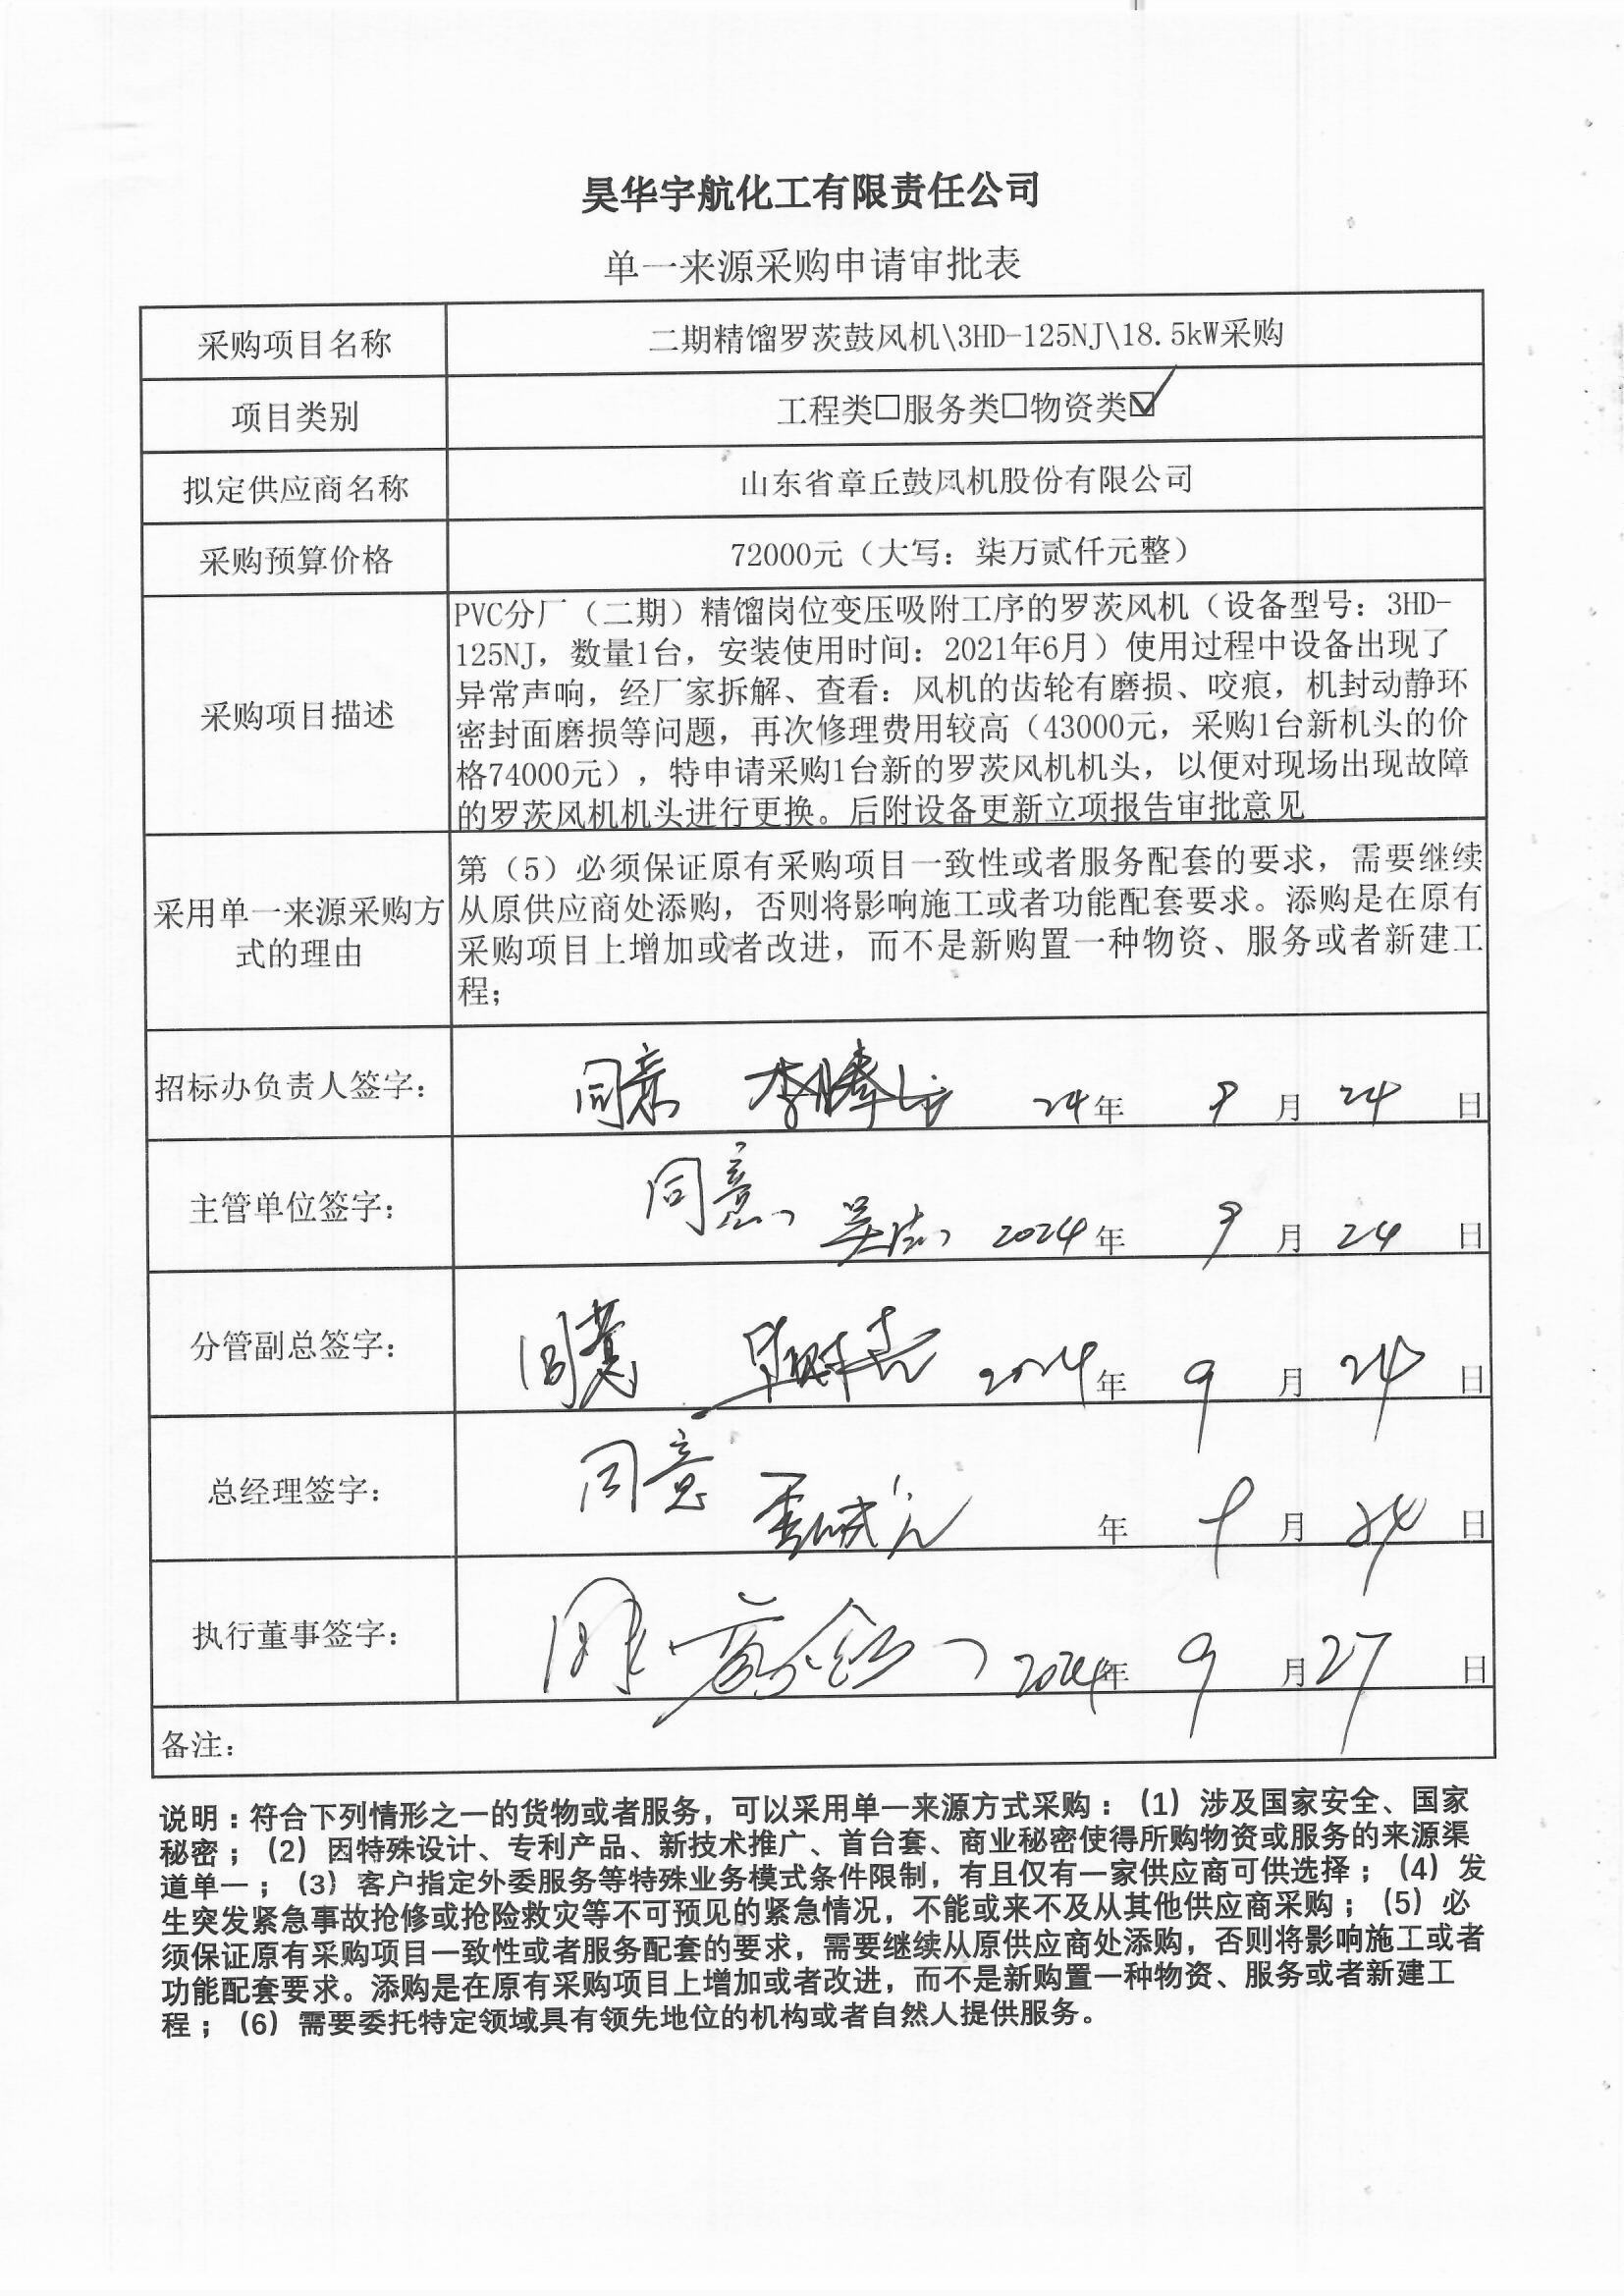 昊华宇航化工有限责任公司
单一来源采购申请审批表
采购项目名称
二期精馏罗茨鼓风机\3HD-125NJ\18.5kW采购
项目类别
工程类□服务类□物资类☑
拟定供应商名称
山东省章丘鼓风机股份有限公司
采购预算价格
72000元（大写：柒万贰仟元整）
采购项目描述
PVC分厂（二期）精馏岗位变压吸附工序的罗茨风机（设备型号：3HD-
125NJ，数量1台，安装使用时间：2021年6月）使用过程中设备出现了
异常声响，经厂家拆解、查看：风机的齿轮有磨损、咬痕，机封动静环
密封面磨损等问题，再次修理费用较高（43000元，采购1台新机头的价
格74000元），特申请采购1台新的罗茨风机机头，以便对现场出现故障
的罗茨风机机头进行更换。后附设备更新立项报告审批意见
采用单一来源采购方
式的理由
第（5）必须保证原有采购项目一致性或者服务配套的要求，需要继续
从原供应商处添购，否则将影响施工或者功能配套要求。添购是在原有
采购项目上增加或者改进，而不是新购置一种物资、服务或者新建工
程；
招标办负责人签字：
同意 24年 9月 24日
主管单位签字：
同意 2024年 9月 24日
分管副总签字：
同意 2024年 9月 24日
总经理签字：
同意 年 9月 24日
执行董事签字：
2024年 9月 27日
备注：
说明：符合下列情形之一的货物或者服务，可以采用单一来源方式采购：（1）涉及国家安全、国家
秘密；（2）因特殊设计、专利产品、新技术推广、首台套、商业秘密使得所购物资或服务的来源渠
道单一；（3）客户指定外委服务等特殊业务模式条件限制，有且仅有一家供应商可供选择；（4）发
生突发紧急事故抢修或抢险救灾等不可预见的紧急情况，不能或来不及从其他供应商采购；（5）必
须保证原有采购项目一致性或者服务配套的要求，需要继续从原供应商处添购，否则将影响施工或者
功能配套要求。添购是在原有采购项目上增加或者改进，而不是新购置一种物资、服务或者新建工
程；（6）需要委托特定领域具有领先地位的机构或者自然人提供服务。